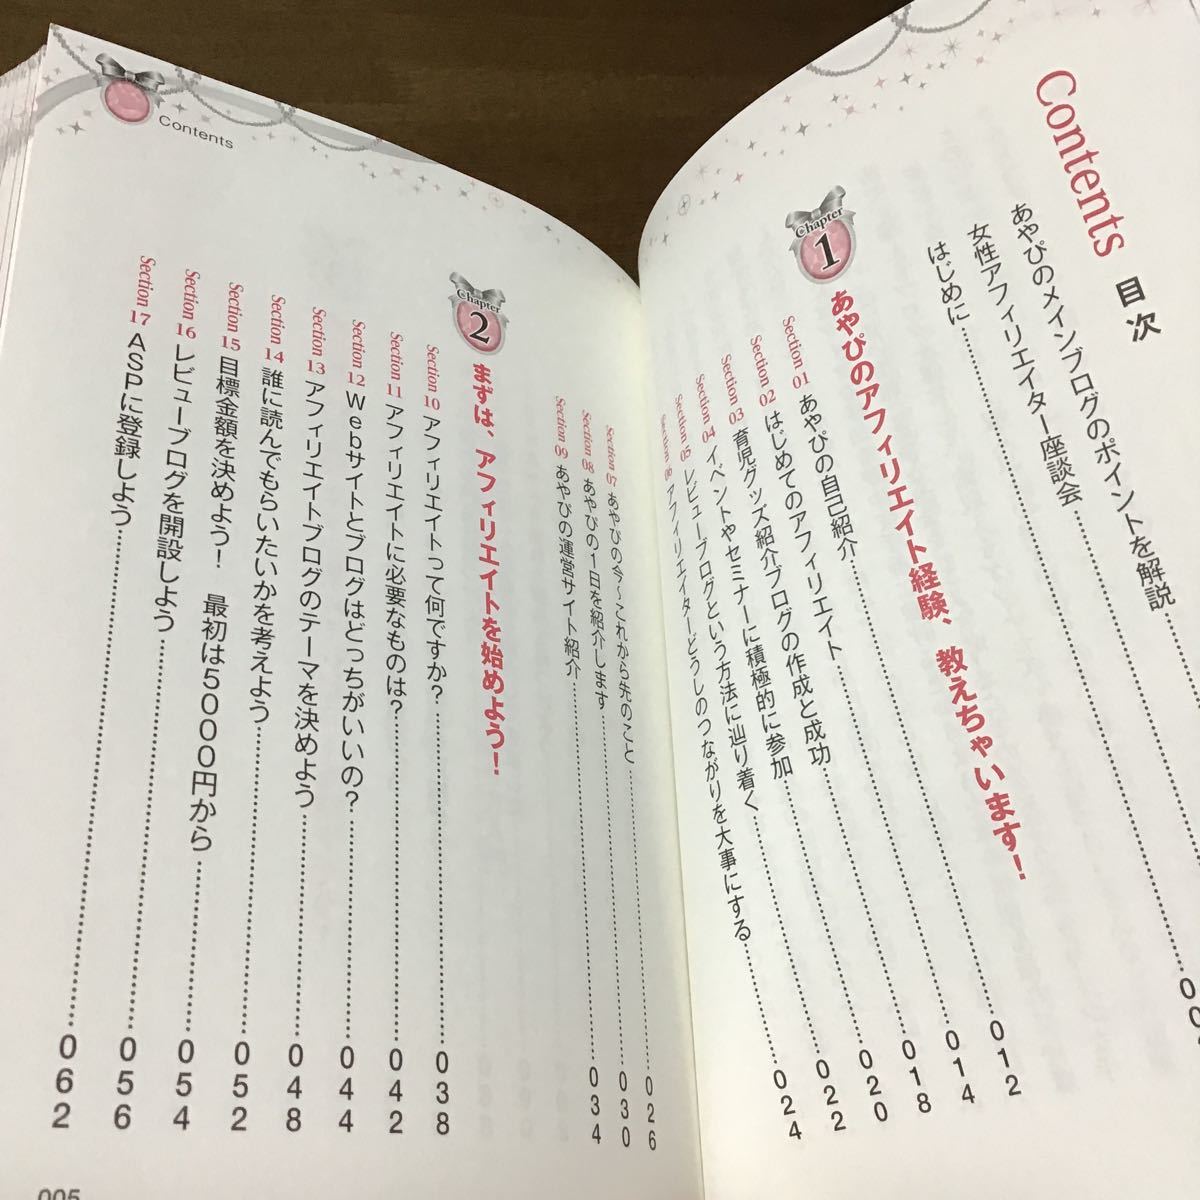 Contents 目次
はじめに
女性アフィリエイター座談会
あやぴのメインブログのポイントを解説
Chapter 1 あやぴのアフィリエイト経験、教えちゃいます！
Section 01 あやぴの自己紹介 012
Section 02 はじめてのアフィリエイト 014
Section 03 育児グッズ紹介ブログの作成と成功 018
Section 04 イベントやセミナーに積極的に参加 020
Section 05 レビューブログという方法に辿り着く 022
Section 06 アフィリエイターどうしのつながりを大事にする 024
Contents
Section 07 あやぴの今～これから先のこと 026
Section 08 あやぴの1日を紹介します 030
Section 09 あやぴの運営サイト紹介 034
Chapter 2 まずは、アフィリエイトを始めよう！
Section 10 アフィリエイトって何ですか？ 038
Section 11 アフィリエイトに必要なものは？ 042
Section 12 Webサイトとブログはどっちがいいの？ 044
Section 13 アフィリエイトブログのテーマを決めよう 048
Section 14 誰に読んでもらいたいかを考えよう 052
Section 15 目標金額を決めよう！　最初は5000円から 054
Section 16 レビューブログを開設しよう 056
Section 17 ASPに登録しよう 062
005